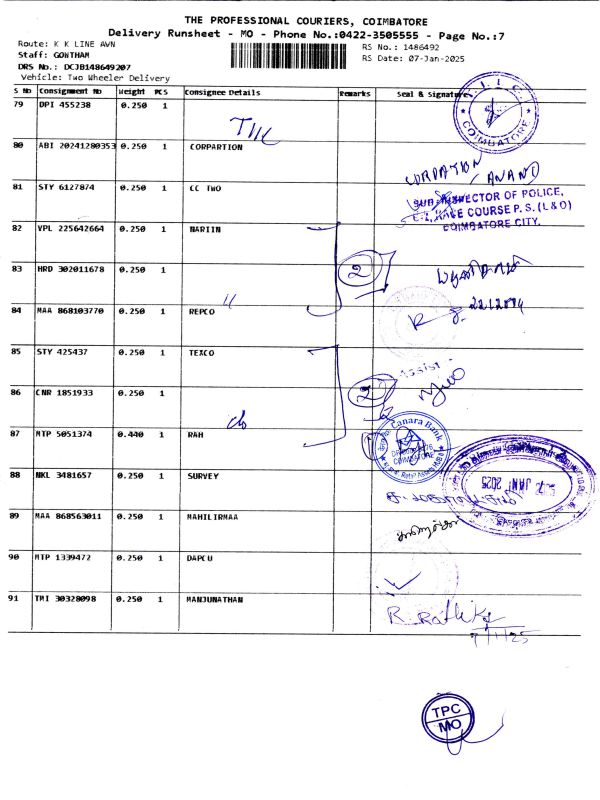 THE PROFESSIONAL COURIERS, COIMBATORE
Delivery Runsheet - MO - Phone No.:0422-3505555 - Page No.:7
Route: K K LINE AWN
RS No.: 1486492
Staff: GOWTHAM
RS Date: 07-Jan-2025
DRS No.: DCJB148649207
Vehicle: Two Wheeler Delivery
S No Consignment No Weight PCS Consignee Details Remarks Seal & Signature
79 DPI 455238 0.250 1
L.I.C.
COIMBATORE
80 ABI 20241280353 0.250 1 CORPARTION
ANAND
81 STY 6127874 0.250 1 CC TWO
SUB-INSPECTOR OF POLICE,
RACE COURSE P.S.(L&O)
COIMBATORE CITY.
82 VPL 225642664 0.250 1 NARIIN
2
83 HRD 302011678 0.250 1
84 MAA 868103770 0.250 1 REPCO
85 STY 425437 0.250 1 TEXCO
Assist
86 CNR 1851933 0.250 1
2
Canara Bank
COIMBATORE
87 MTP 5051374 0.440 1 RAH
JAN 2025
88 NKL 3481657 0.250 1 SURVEY
89 MAA 868563011 0.250 1 MAHILIRMAA
90 MTP 1339472 0.250 1 DAPCU
91 TMI 30328098 0.250 1 MANJUNATHAN
R. Rathika
7/1/25
TPC
MO